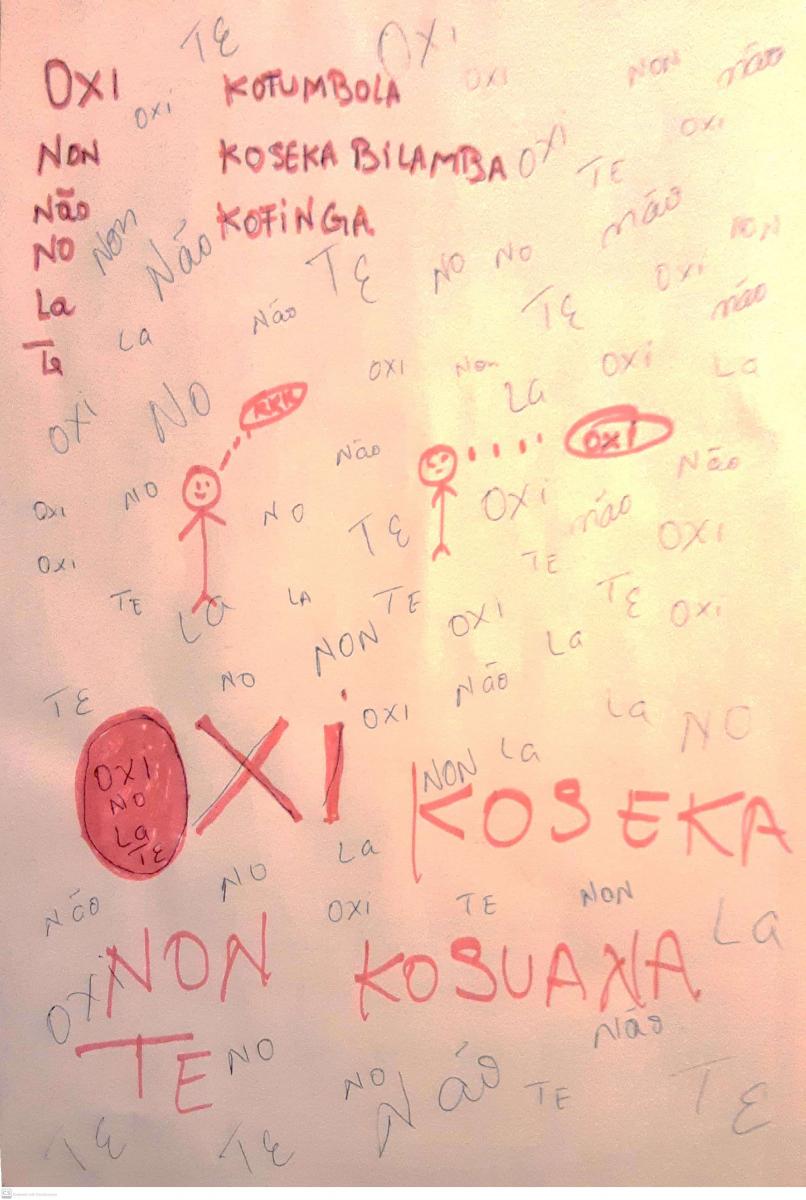 TE OXI
OXI KOTUMBOLA OXI NON não
OXI OXI
NON KOSEKA BILAMBA OXI TE
Não KOFINGA não
NO Non Não TE NO NO NON
La TE OXI não
Te La Não
OXI Non OXI La
OXI NO KKK La
Não OXI Não
OXI NO NO TE OXI não OXI
OXI TE
TE La LA TE OXI TE OXI
NON La
TE NO Não
OXI OXI La NO
OXI NON La
NO
La
TE KOSEKA
La
NO NON
Não OXI TE La
NON KOSUANA
OXI Não
TE NO
NO Não TE TE
TE TE